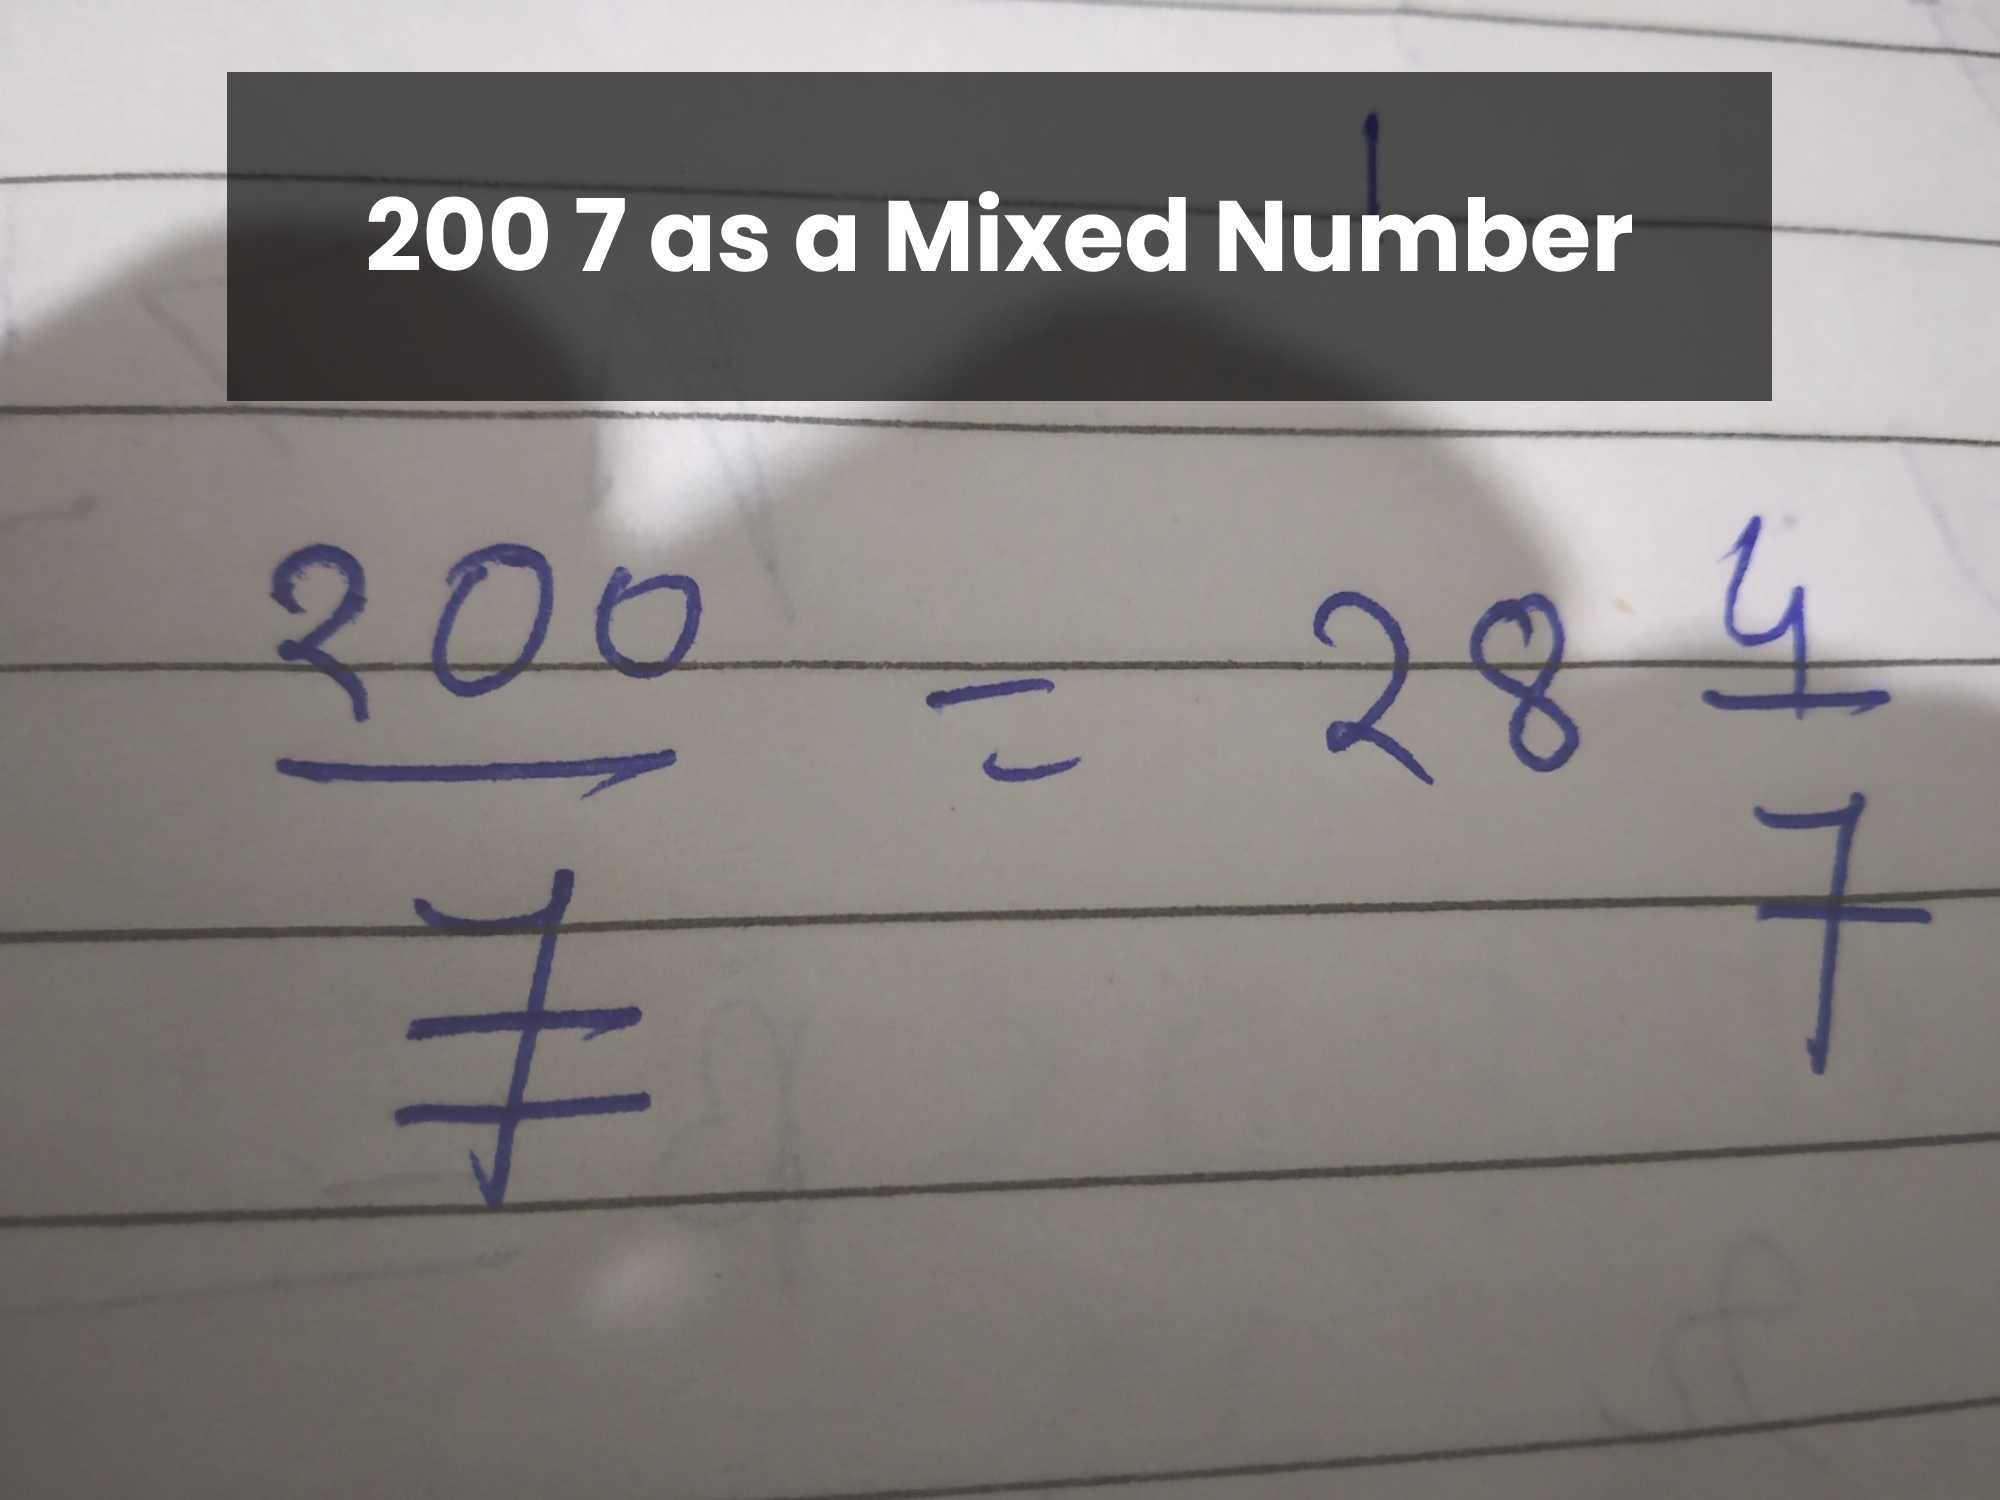 200 7 as a Mixed Number
200/7 = 28 4/7